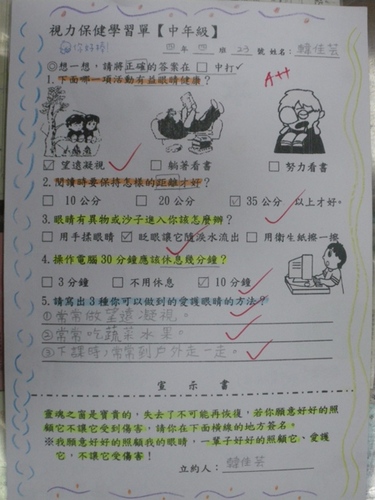 視力保健學習單【中年級】
你好棒!
四 年 四 班 23 號 姓名:韓佳芸
◎想一想,請將正確的答案在 □ 中打✓
A++
1.下面哪一項活動有益眼睛健康?
☑望遠凝視 □躺著看書 □努力看書
2.閱讀時要保持怎樣的距離才好?
□10 公分 □20 公分 ☑35 公分 以上才好。
3.眼睛有異物或沙子進入你該怎麼辦?
□用手揉眼睛 ☑眨眼讓它隨淚水流出 □用衛生紙擦一擦
4.操作電腦 30 分鐘應該休息幾分鐘?
□3 分鐘 □不用休息 ☑10 分鐘
5.請寫出 3 種你可以做到的愛護眼睛的方法?
①常常做望遠凝視。
②常常吃蔬菜水果。
③下課時,常常到戶外走一走。
宣 示 書
靈魂之窗是寶貴的,失去了不可能再恢復,若你願意好好的照
顧它不讓它受到傷害,請你在下面橫線的地方簽名。
※我願意好好的照顧我的眼睛,一輩子好好的照顧它、愛護
它,不讓它受傷害!
立約人:韓佳芸